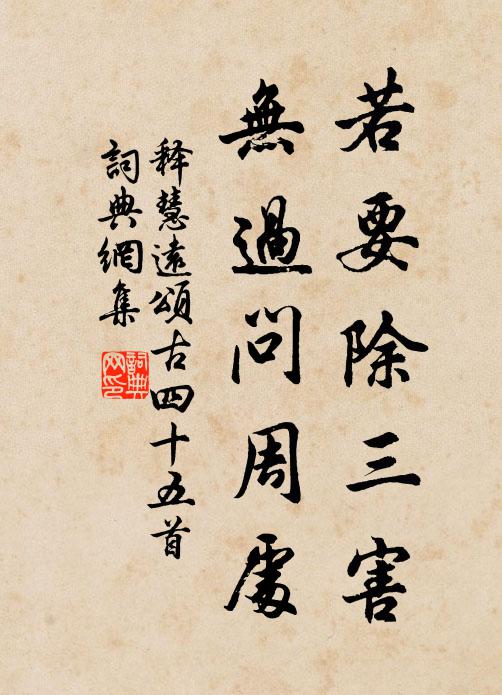 若要除三害
無過問周處
釋慧遠頌古四十五首
詞典網集
詞典網印